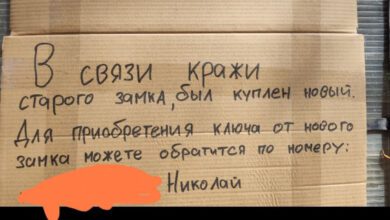 В связи кражи
старого замка, был куплен новый.
Для приобретения ключа от нового
замка можете обратится по номеру:
Николай